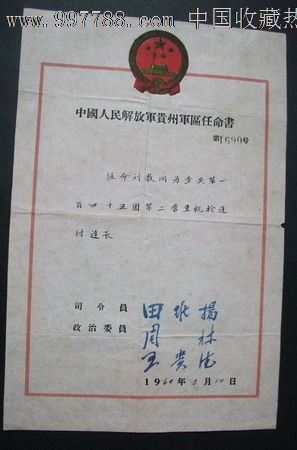 www.997788.com 中国收藏热
中國人民解放軍貴州軍區任命書
第1690号
任命刘教明为步兵第一
百四十五團第二营重机枪連
付連長
司令員 田维揚
政治委員 周林
王貴德
1960年5月10日